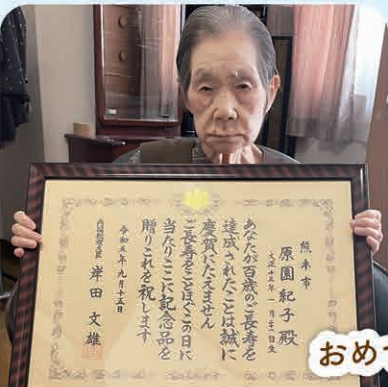 熊本市
原園紀子殿
大正十三年一月二十一日生
あなたが百歳のご長寿を
達成されたことは誠に
慶賀にたえません
ご長寿をことほぐこの日に
当たりここに記念品を
贈りこれを祝します
令和五年九月十五日
内閣総理大臣 岸田文雄
おめ